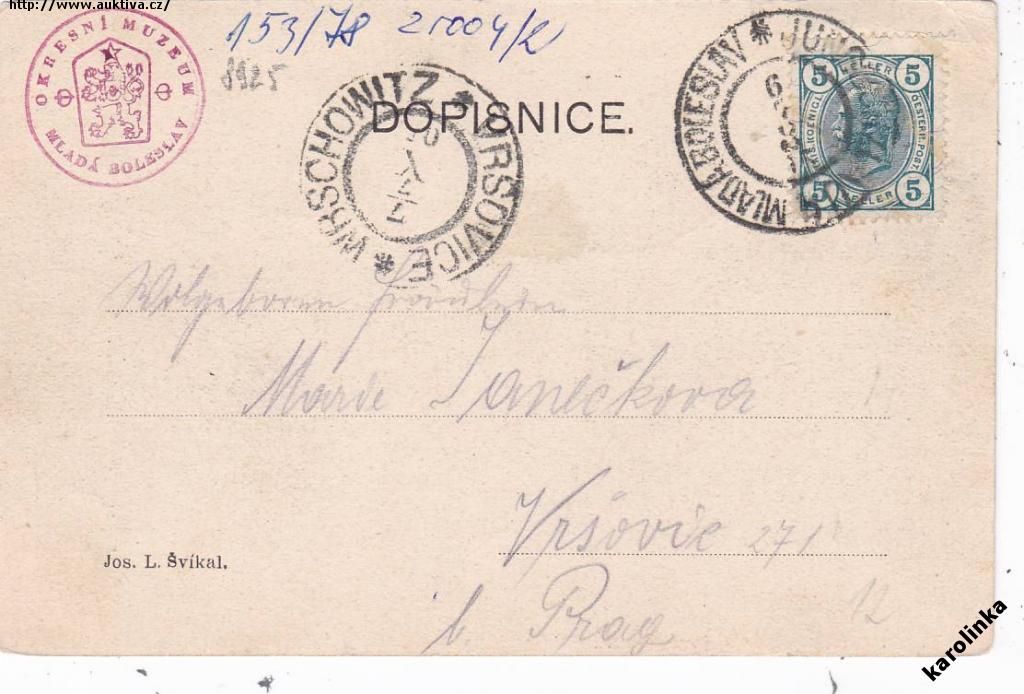 http://www.auktiva.cz/
OKRESNÍ MUZEUM
MLADÁ BOLESLAV
153/78 21004/2
8925
DOPISNICE.
WRSCHOWITZ * VRŠOVICE *
MLADÁ BOLESLAV * JUNG
5 HELLER 5
KAIS. KOENIGL. OESTERR. POST.
5 HELLER 5
Wolgeboren Fräulein
Marie Janečkova
Vršovic 271
b. Prag
12
Jos. L. Švíkal.
karolinka